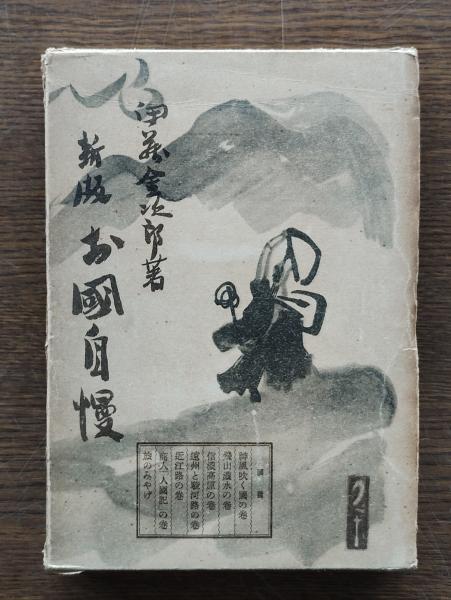 伊藤金次郎著
新版
お國自慢
神風吹く國の巻
飛山濃水の巻
信濃高原の巻
遠州と駿河路の巻
近江路の巻
商人「人國記」の巻
旅のみやげ